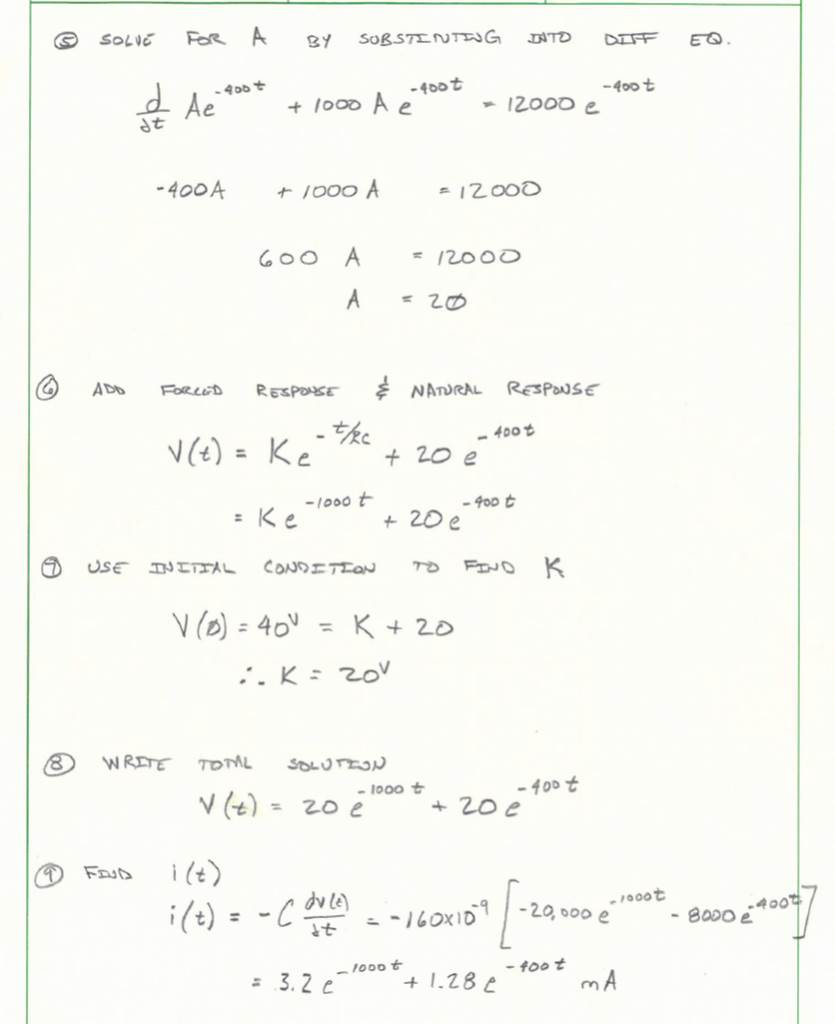 ⑤ SOLVE FOR A BY SUBSTINTING INTO DIFF EQ.
d/dt Ae^-400t + 1000 A e^-400t = 12000 e^-400t
-400A + 1000 A = 12000
600 A = 12000
A = 20
⑥ ADD FORCED RESPONSE & NATURAL RESPONSE
V(t) = Ke^-t/RC + 20 e^-400t
= Ke^-1000t + 20e^-400t
⑦ USE INITIAL CONDITION TO FIND K
V(0) = 40^V = K + 20
∴ K = 20^V
⑧ WRITE TOTAL SOLUTION
V(t) = 20 e^-1000t + 20 e^-400t
⑨ FIND i(t)
i(t) = -C dv(t)/dt = -160x10^-9 [-20,000 e^-1000t - 8000 e^-400t]
= 3.2 e^-1000t + 1.28 e^-400t mA